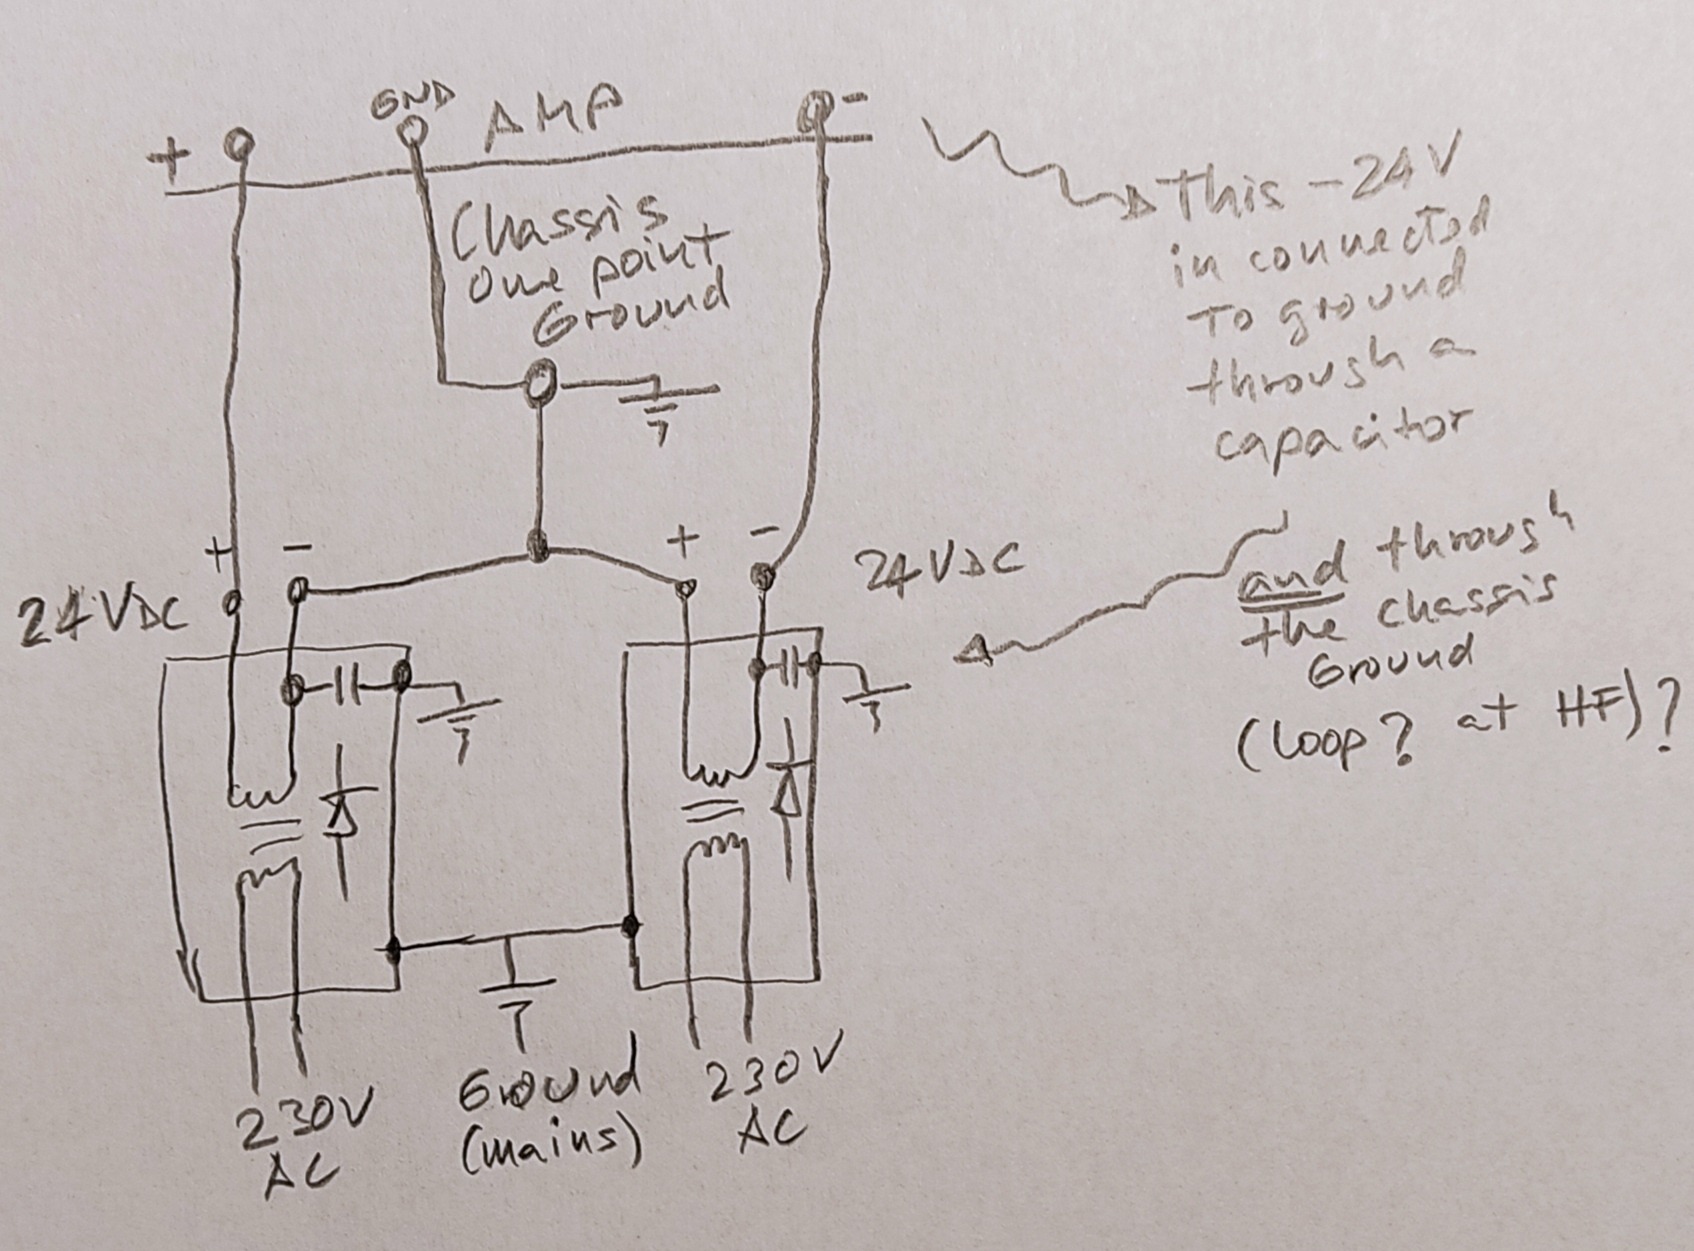 GND AMP
+
-
This -24V
in connected
to ground
through a
capacitor
Chassis
one point
Ground
+ -
+ -
24VDC
24VDC
and through
the chassis
Ground
(loop? at HF)?
Ground
(mains)
230V
AC
230V
AC